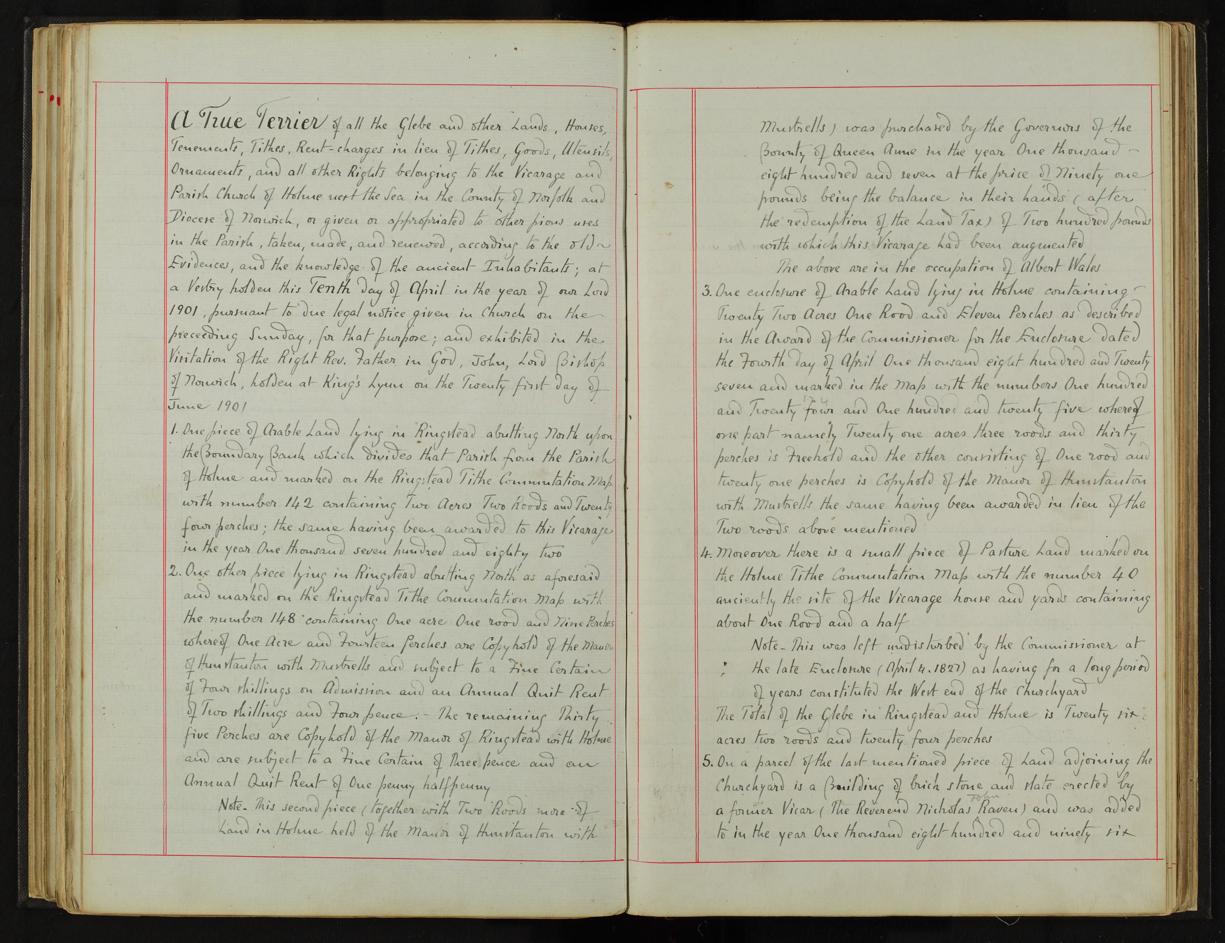 A True Terrier of all the Glebe and other Lands, Houses,
Tenements, Tithes, Rent-charges in lieu of Tithes, Goods, Utensils,
Ornaments, and all other Rights belonging to the Vicarage and
Parish Church of Holme next the Sea in the County of Norfolk and
Diocese of Norwich, or given or appropriated to other pious uses
in the Parish, taken, made, and renewed, according to the old
Evidences, and the knowledge of the ancient Inhabitants; at
a Vestry holden this Tenth day of April in the year of our Lord
1901, pursuant to due legal notice given in Church on the
preceeding Sunday, for that purpose; and exhibited in the
Visitation of the Right Rev. Father in God, John, Lord Bishop
of Norwich, holden at King's Lynn on the Twenty first day of
June 1901
1. One piece of Arable Land lying in Ringstead abutting North upon
the Boundary Bank which divides that Parish from the Parish
of Holme and marked on the Ringstead Tithe Commutation Map
with number 142 containing Two Acres Two Roods and Twenty
four perches; the same having been awarded to this Vicarage
in the year One thousand seven hundred and eighty two
2. One other piece lying in Ringstead abutting North as aforesaid
and marked on the Ringstead Tithe Commutation Map with
the number 148 containing One acre One rood and Nine Perches
whereof One Acre and Fourteen Perches are Copyhold of the Manor
of Hunstanton with Mustrells and subject to a Fine Certain
of Four shillings on Admission and an Annual Quit Rent
of Two shillings and Four pence :- The remaining Thirty
five Perches are Copyhold of the Manor of Ringstead with Holme
and are subject to a Fine Certain of Three pence and an
Annual Quit Rent of One penny halfpenny
Note- This second piece (together with Two Roods more of
Land in Holme held of the Manor of Hunstanton with
Mustrells) was purchased by the Governors of the
Bounty of Queen Anne in the year One thousand -
eight hundred and seven at the price of Ninety one
pounds being the balance in their hands (after
the redemption of the Land Tax) of Two hundred pounds
with which this Vicarage had been augmented
The above are in the occupation of Albert Wales
3. One enclosure of Arable Land lying in Holme containing -
Twenty Two Acres One Rood and Eleven Perches as described
in the Award of the Commissioner for the Enclosure dated
the Fourth day of April One thousand eight hundred and Twenty
seven and marked in the Map with the numbers One hundred
and Twenty four and One hundred and twenty five whereof
one part namely Twenty one acres three roods and thirty
perches is Freehold and the other consisting of One rood and
twenty one perches is Copyhold of the Manor of Hunstanton
with Mustrells the same having been awarded in lieu of the
Two roods above mentioned
4. Moreover there is a small piece of Pasture Land marked on
the Holme Tithe Commutation Map with the number 40
anciently the site of the Vicarage house and yards containing
about One Rood and a half
Note- This was left undisturbed by the Commissioner at
the late Enclosure (April 4. 1827) as having for a long period
of years constituted the West end of the Churchyard
The Total of the Glebe in Ringstead and Holme is Twenty six
acres two roods and twenty four perches
5. On a parcel of the last mentioned piece of Land adjoining the
Churchyard is a building of brick stone and slate erected by
a former Vicar (The Reverend Nicholas Raven) and was added
to in the year One thousand eight hundred and ninety six